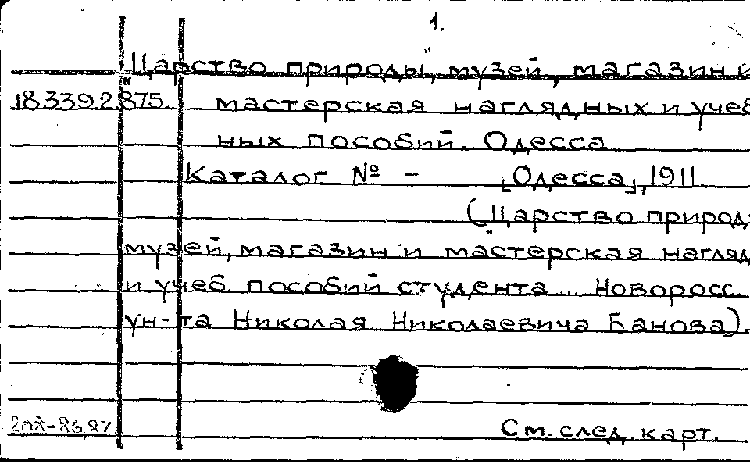 1.
„Царство природы, музей, магазин и
18.339.2.875. мастерская наглядных и учеб
ных пособий. Одесса
Каталог № – [Одесса], 1911
(„Царство природ
музей, магазин и мастерская нагляд
и учеб. пособий студента... Новоросс.
ун-та Николая Николаевича Банова).
См. след. карт.